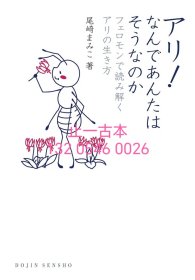 アリ！
なんであんたは
そうなのか
フェロモンで読み解く
アリの生き方
尾崎まみこ 著
止一古本
DOJIN SENSHO